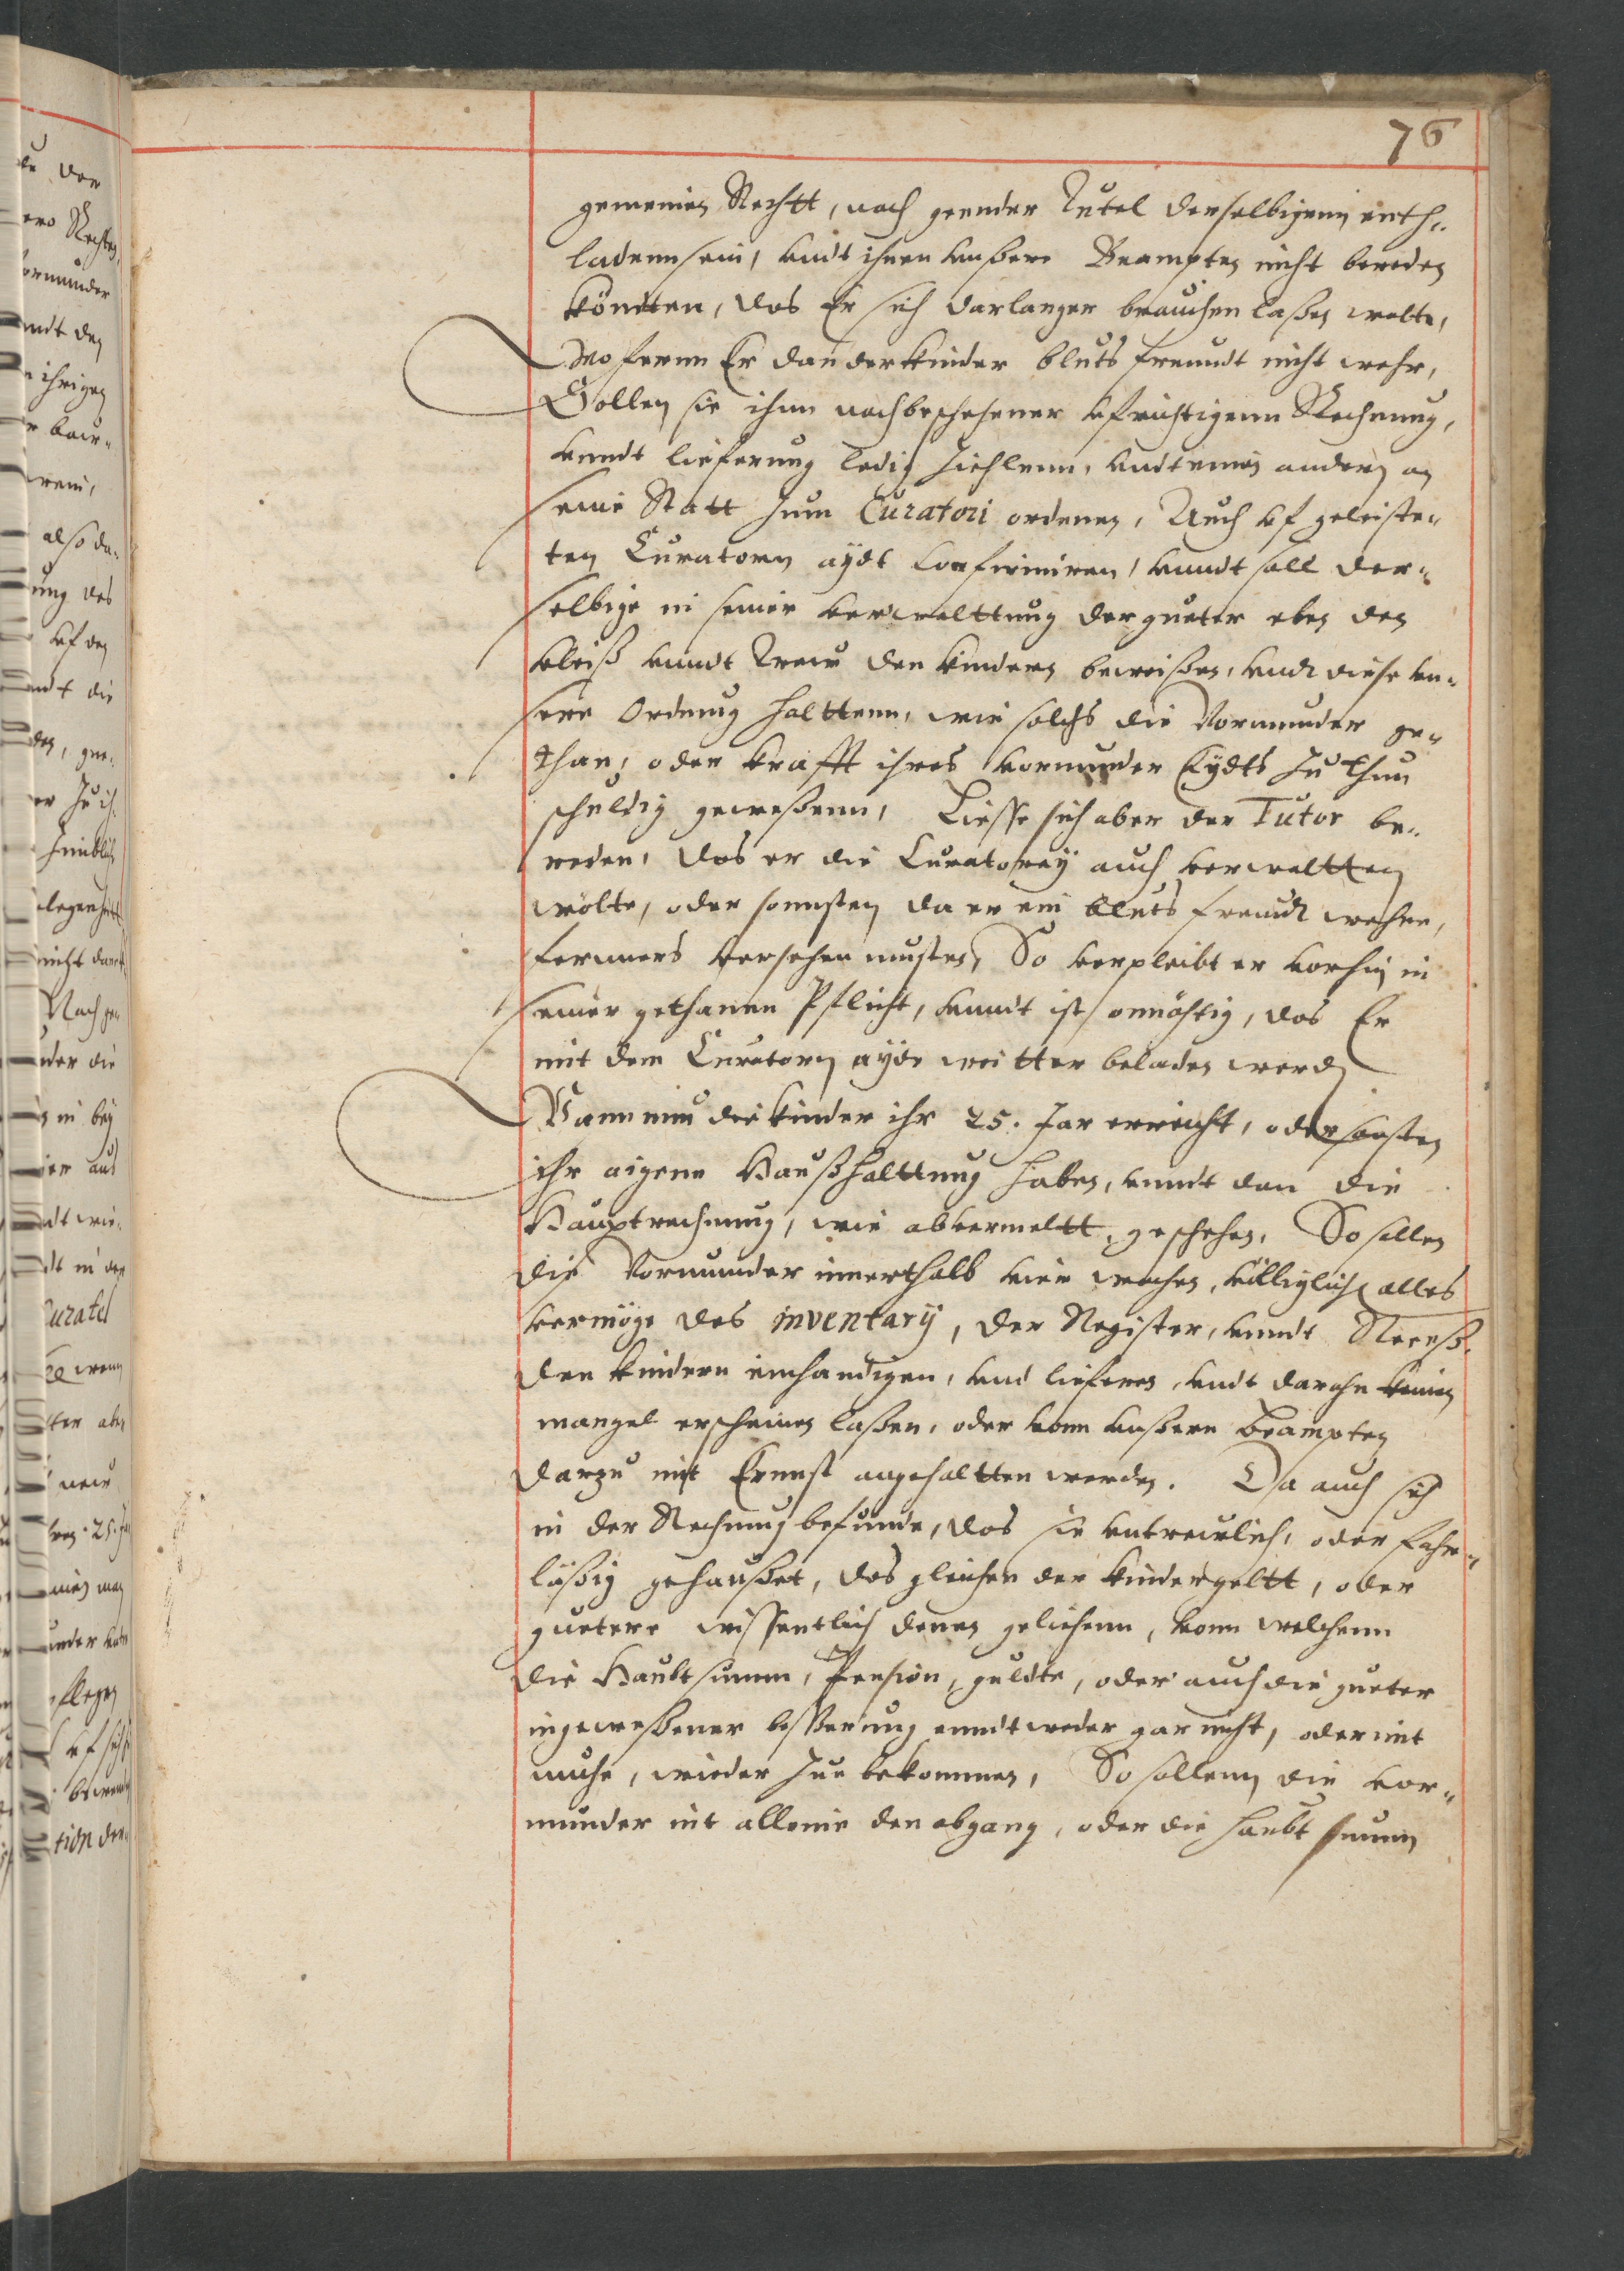 76
gemeinen Rechtt, nach geender Tutel derselbigenn enth-
ladenn sein, undt ihnen unßere Beampten nicht bereden
köndten, das Er sich darlanger brauchen laßen wolte,
Wo fernn Er dan der kinder bluts freundt nicht wehr,
Sollen sie ihnn nach beschehener ufrichtigenn Rechnung,
unndt lieferung ledig Ziehlenn, undt einen andern an
seine Statt zum Curatori ordenen, Auch uf geleiste„
ten Curatorn aydt confirmiren, unndt soll der„
selbige in seiner verwalttung der gueter eben den
vleiß unndt Trew den kindern beweißen, undt diese un„
sere Ordnung halttenn, wie solchs die Vormunder ge„
than, oder krafft ihres vormunder Eydts zu thun
schuldig geweßenn, Liesse sich aber der Tutor be„
reden, das er die Curatorey auch verwaltten
wolte, oder sonnsten da er ein bluts freundt wehre,
fernners versehen musten, So verpleibt er vorhin in
seiner gethanen Pflicht, unndt ist onnöhtig, das Er
mit dem Curatorn ayde weitter beladen werd
Wann nun die kinder ihr 25. Jar erreicht, oder sonsten
ihr aigene Haußhalttung haben, unndt dan die
Hauptrechnung, wie abvermeltt, geschehen, So sollen
die Vormunder innerthalb vier wochen, völliglich alles
vermöge des inventarÿ, der Register, unndt Receß.
den kindern einhandigen, und liefern, undt darahn keinen
mangel erscheinen laßen, oder vonn unßern beampten
darzu mit Ernnst angehaltten werden. Da auch sich
in der Rechnung befünde, das sie untrewlich, oder fahr„
läßig gehaußet, des gleichen der kinder geltt, oder
guetere wissentlich denen geliehenn, vonn welchenn
die Haubt summ, Pension, guldte, oder auch die gueter
in geweßener beßerung enndtweder gar nicht, oder mit
muhe, wieder zue bekommen, So sollenn die vor„
munder nit alleine den abgang, oder die haubt summ